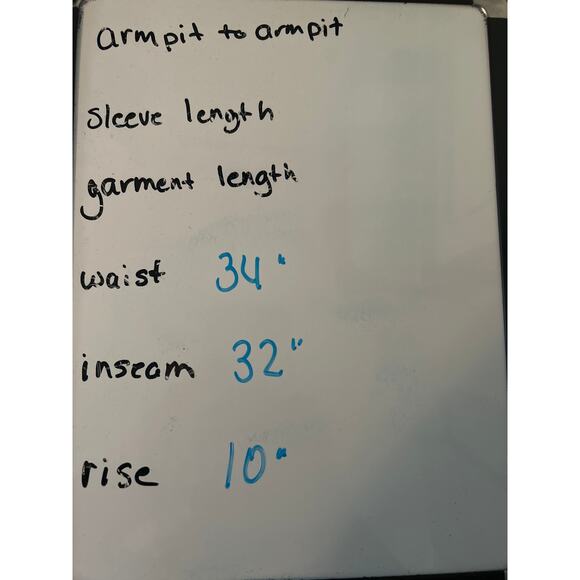 armpit to armpit
sleeve length
garment length
waist 34"
inseam 32"
rise 10"